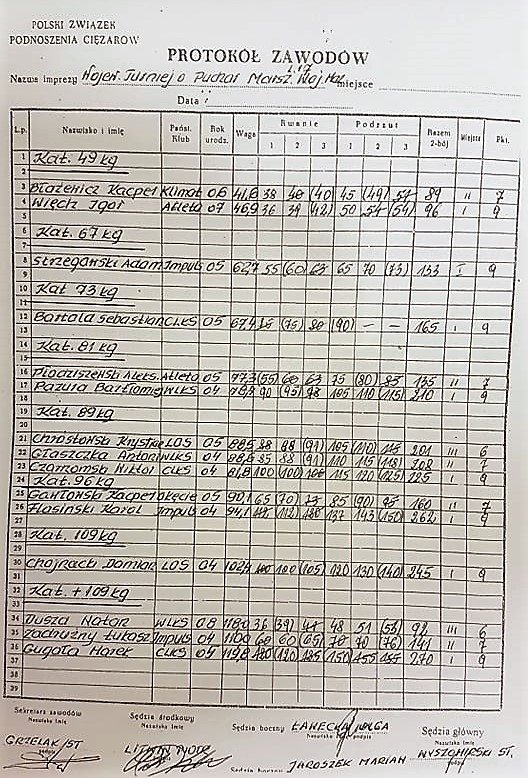 POLSKI ZWIĄZEK
PODNOSZENIA CIĘŻARÓW
PROTOKÓŁ ZAWODÓW
Nazwa imprezy Wojew. Turniej o Puchar Marsz. Woj. miejsce
Data
Lp. Nazwisko i imię Państ. Klub Rok urodz. Waga Rwanie 1 2 3 Podrzut 1 2 3 Razem 2-bój Miejsce Pkt.
1 Kat. 49 kg
2
3 Błażenicz Kacper Klimat 06 41,6 38 40 (40) 45 (49) 54 89 II 7
4 Więch Igor Atleta 07 46,9 36 39 (42) 50 54 (54) 96 I 9
5
6 Kat. 67 kg
7
8 Strzegański Adam Impuls 05 62,7 55 (60) 63 65 70 (73) 133 I 9
9
10 Kat 73 kg
11
12 Bartala Sebastian CLKS 05 67,4 (75) 80 (90) – – 165 I 9
13
14 Kat. 81 kg
15
16 Aleks. Atleta 05 77,3 (55) 60 63 75 (80) 85 135 II 7
17 Pazura Bartłomiej WLKS 04 90 (95) 98 105 110 (115) 210 I 9
18
19 Kat. 89 kg
20
21 Chrostowski Krystian LOS 05 88,5 88 88 (91) 105 (110) 115 201 III 6
22 Głaszczka Antoni WLKS 04 85 88 (91) 110 115 (118) 208 II 7
23 Czaromski Wiktor CLKS 04 81,8 100 (100) 115 120 (125) 225 I 9
24 Kat. 96 kg
25 Gawłowski Kacper Okęcie 05 90,1 65 (70) 73 85 (90) 95 160 II 7
26 Karol Impuls 04 94,1 (112) 137 143 (150) 262 I 9
27
28 Kat. 109 kg
29
30 Chojnacki Damian LOS 04 100 100 (105) 120 130 (140) 245 I 9
31
32 Kat. + 109 kg
33
34 Dusza Natan WLKS 08 118,0 36 (39) 41 48 51 (53) 92 III 6
35 Zadrużny Łukasz Impuls 04 60 60 (65) 70 70 (76) 141 II 7
36 Gugała Marek CLKS 04 119,8 120 (120) 125 (150) 155 155 270 I 9
37
38
39
Sekretarz zawodów
Nazwisko Imię
podpis
GRZELAK ST
Sędzia środkowy
Nazwisko Imię
Sędzia boczny ŁANECKA OLGA
Nazwisko Imię podpis
Sędzia boczny JAROSZEK MARIAN
Sędzia główny
Nazwisko Imię
WYSZOMIRSKI ST.
podpis